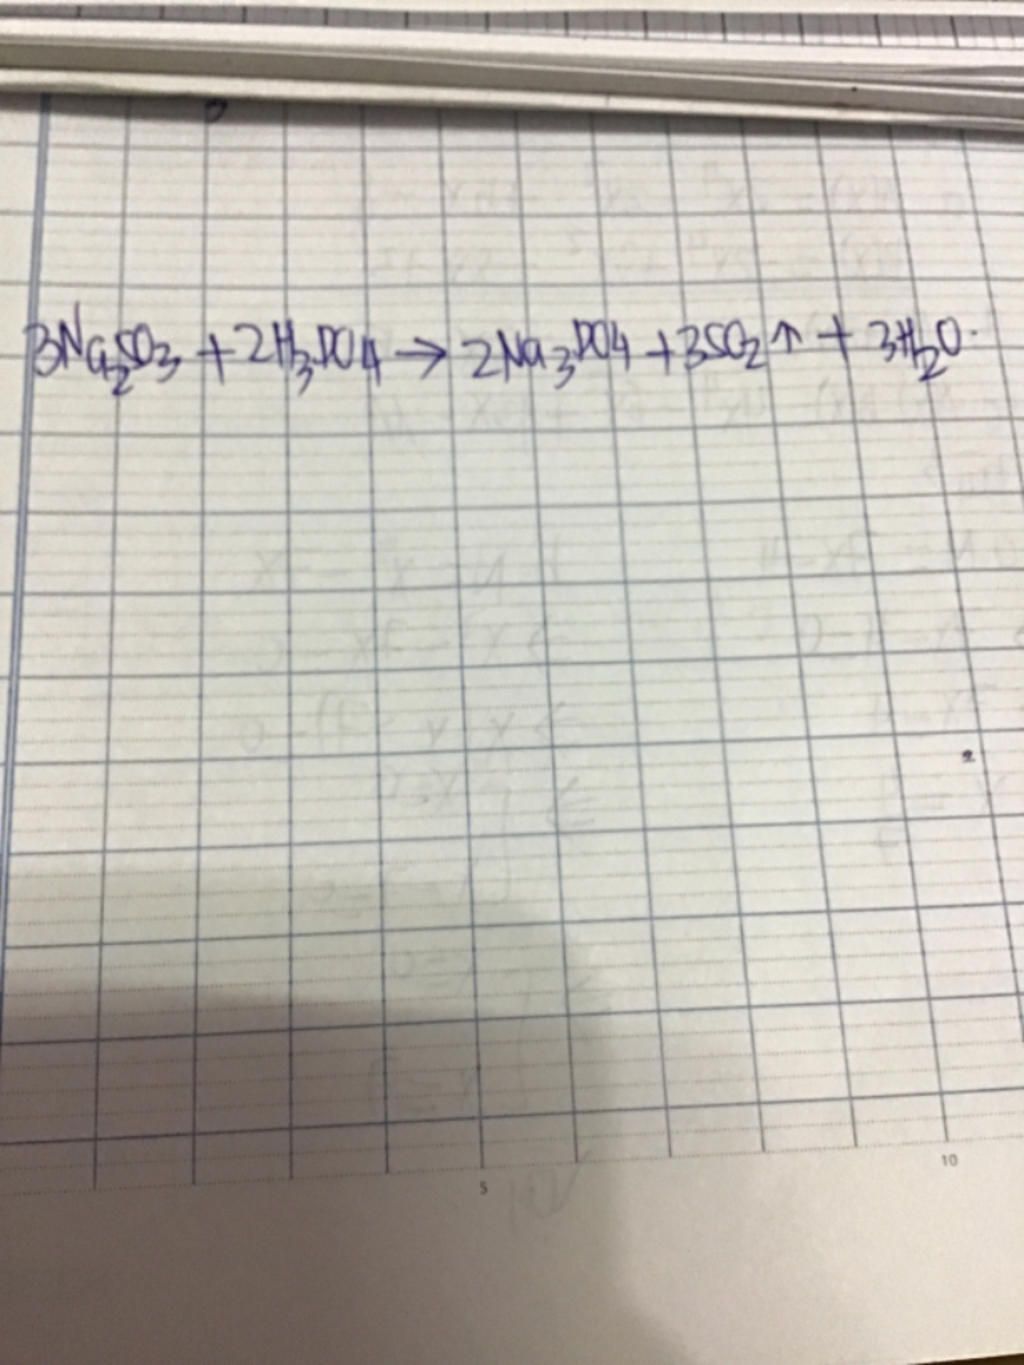 3Na2SO3 + 2H3PO4 → 2Na3PO4 + 3SO2↑ + 3H2O.
5
10